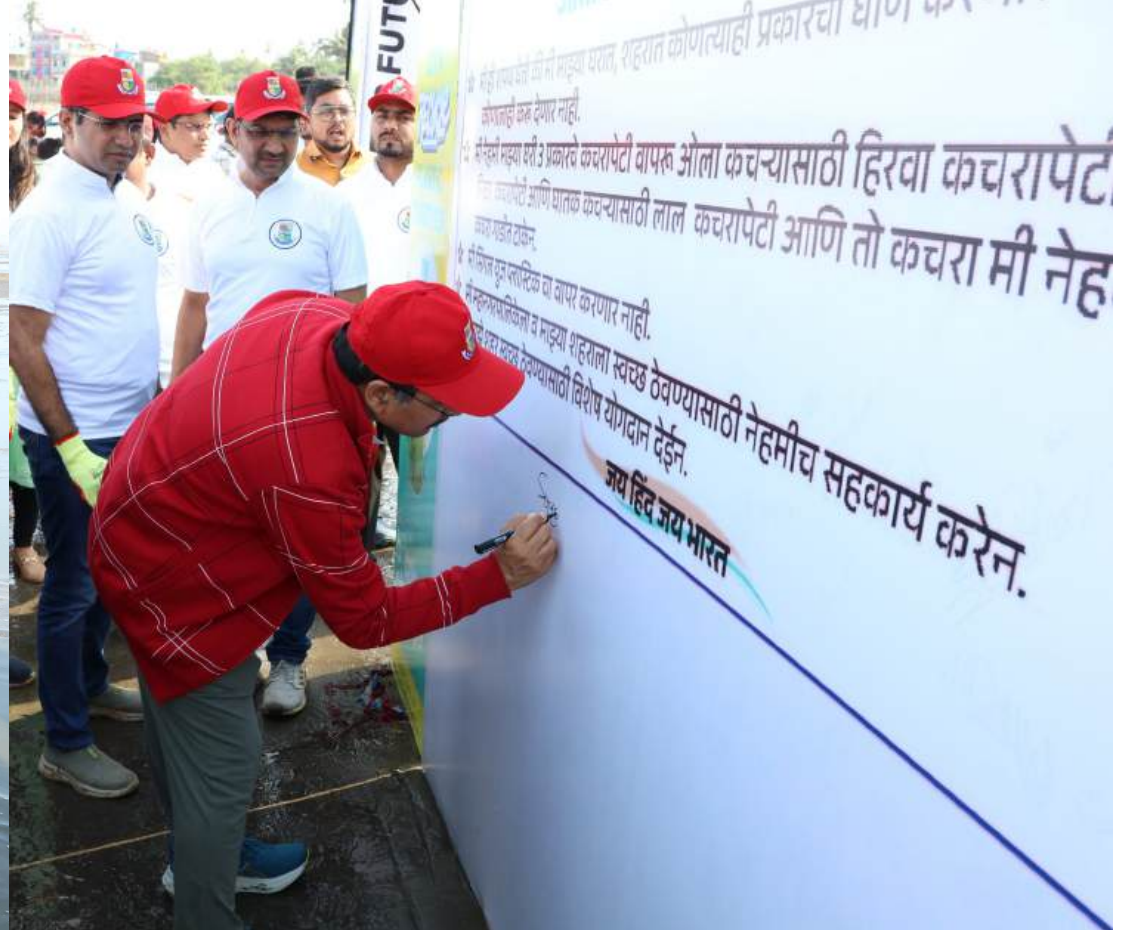 FUTU
मी ही शपथ घेतो की मी माझ्या घरात, शहरात कोणत्याही प्रकारची घाण
कोणालाही करू देणार नाही.
मी नेहमी माझ्या घरी 3 प्रकारचे कचरापेटी वापरू ओला कचऱ्यासाठी हिरवा कचरापेटी
कचरापेटी आणि घातक कचऱ्यासाठी लाल कचरापेटी आणि तो कचरा मी नेह
कचरा गाडीत टाकेन.
मी सिंगल युज प्लास्टिक चा वापर करणार नाही.
मी महानगरपालिकेला व माझ्या शहराला स्वच्छ ठेवण्यासाठी नेहमीच सहकार्य करेन.
शहर स्वच्छ ठेवण्यासाठी विशेष योगदान देईन.
जय हिंद जय भारत